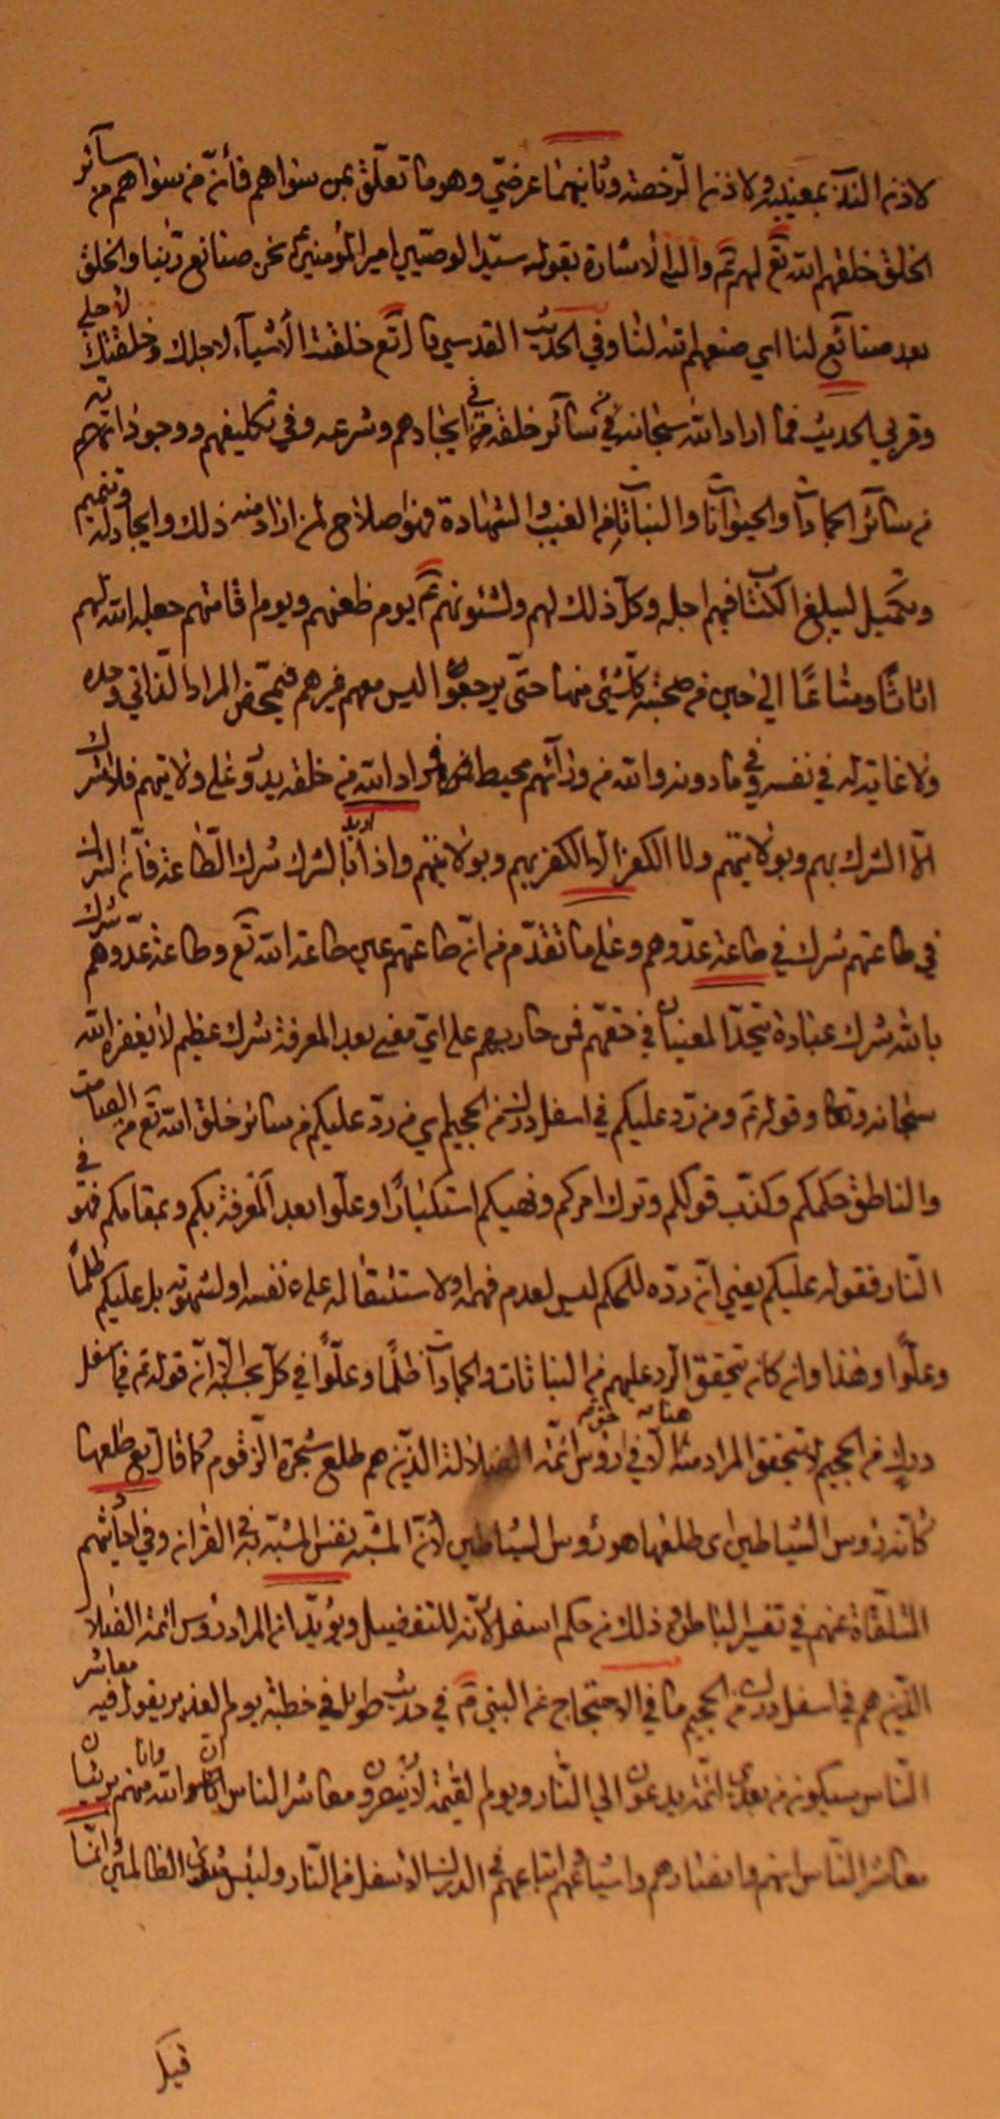 لاذن الندآ بمعنييه ولاذن الرّخصة وثانيهما عرضيّ وهو ما تعلّق بمن سواهم فأنّ من سواهم من سآئر
الخلق خلقهم الله تع لهم ع والى الأشارة بقوله سيّد الوصيّين امير المؤمنين ع نحن صنايع ربّنا والخلق
بعد صنائع لنا اي صنعهم الله لنا وفي الحديث القدسي قال تع خلقت الأشيآء لاجلك وخلقتك لأجلي
وقد مر الحديث فما اراد الله سبحانه في سآئر خلقه من في ايجادهم وشرعه وفي تكليفهم ووجوداتهم
من سآئر الجمادات والحيوانات والنباتات في الغيب والشهادة فهو اصلاح لمن اراد منه ذلك وايجاد له وتتميم
وتكميل ليبلغ الكتاب فيهم اجله وكلّ ذلك لهم ولشئونهم ع يوم ظعنهم ويوم اقامتهم جعله الله لهم
اثاثًا ومتاعًا الى حين في صحبة كلّ شيئ منها حتّى يرجعوا ليس معهم غيرهم فتمحّض المراد الذاتي وحده
ولا غاية له في نفسه وفي ما دونه والله من ورآئهم محيط فمراد الله من خلقه يدور على ولايتهم فلا شرك
الّا الشرك بهم وبولايتهم ولا الكفر الّا الكفر بهم وبولايتهم واذا اريد بالشرك شرك الطاعة فأنّ الشرك
في طاعتهم شرك في طاعة عدّوهم وعلى ما تقدّم من انّ طاعتهم عين طاعة الله تع وطاعة عدّوهم شرك
بالله شرك عبادة يتّحد المعنيان في حقّهم فمن حاربهم على ايّ معنى بعد المعرفة شرك عظيم لا يغفره الله
سبحانه وتعالى وقوله ع ومن ردّ عليكم في اسفل درك من الجحيم اي من ردّ عليكم من سائر خلق الله تع من الصامت
والناطق حكمكم وكذّب قولكم وترك امركم ونهيكم استكبارًا وعلّوا بعد المعرفة بكم وبمقامكم فهو في
النّار فقوله عليكم يعني انّ ردّه للحكم ليس لعدم فهمه او لاستثقاله على نفسه او لشهوته بل عليكم ظلمًا
وعلّوًا وهذا وان كان يتحقق الرّد عليهم من النباتات والجمادات ظلمًا وعلّوًا في كلّ بحسبه الّا انّ قوله ع في اسفل
درك من الجحيم لا يتحقق المراد منه هنا الّا في رؤس ائمّة الضلالة الذّين هم طلع شجرة الزّقوم كما قال تع طلعها
كأنّه رؤس الشياطين اى طلعها هو رؤس الشياطين لأنّ المشبّه نفس المشبّه به في القرانه وفي احاديثهم
المتلقّاة عنهم في تفسير الباطن وذلك من حكم اسفل لأنّه للتفضيل ويؤيّد انه المراد رؤس ائمة الضلال
الذّين هم في اسفل درك من الجحيم ما في الاحتجاج عن النبي ص في حديث طويل في خطبة يوم الغدير يقول فيه معاشر
النّاس سيكونون من بعدي ائمّة يدعون الى النّار ويوم القيمة لا ينصرون معاشر الناس انّ الله وانا منهم بريئان
معاشر النّاس انهم وانصارهم واشياعهم واتباعهم في الدرك الاسفل من النّار ولبئس مثوى الظالمين